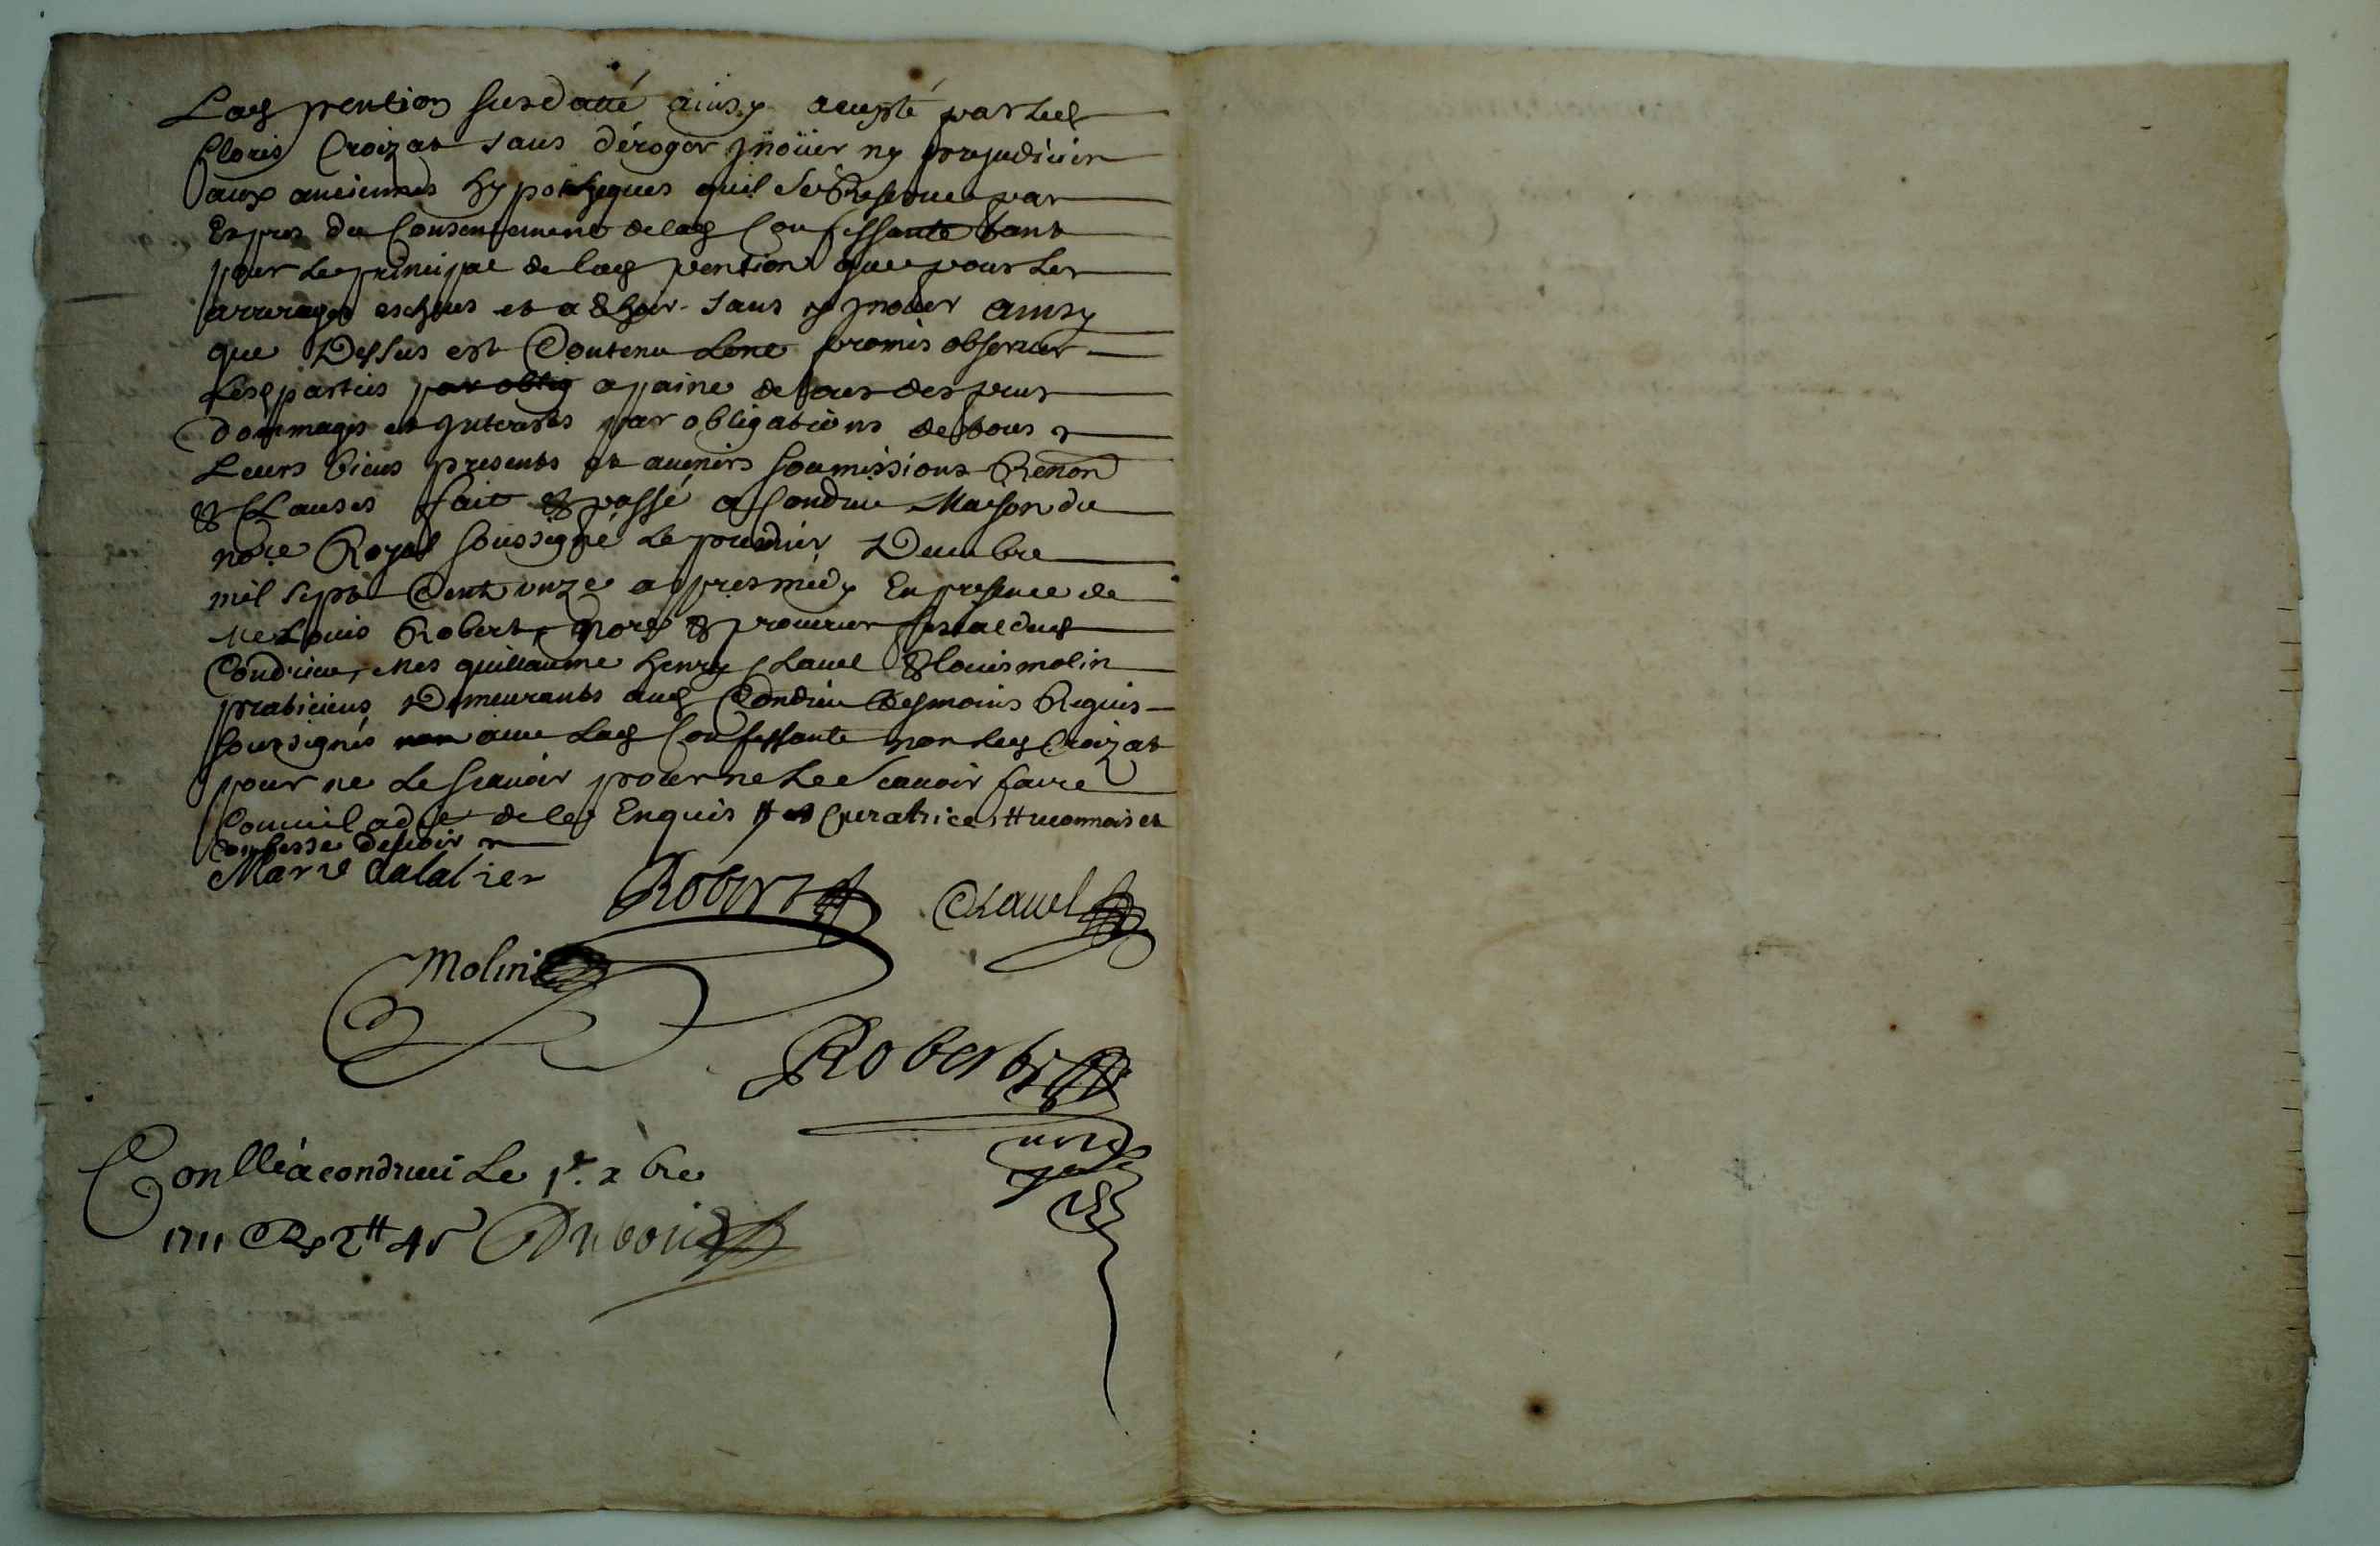 Lad pention susdatté ainsy accepté par led
Cloris Croizat sans déroger jnoüer ny prejudicier
aux anciennes hypotheques quil se Reserve par
Expres du Consentement de lad Confessante tant
pour le principal de lad pention que pour les
arrerages escheus et a Echoir sans y jnover ainsy
que Dessus est Contenu promis observer
Lesd parties par oblig a paine de tous despens
dommages et jnterests par obligations de tous
Leurs biens presents et avenirs soumissions Renon
& Clauses fait & passé a Condrieu Maison du
nore Royal soussigné le premier Decembre
mil sept Cent unze appres midy En presence de
Me Louis Robert, nore & procureur fiscal dud
Condrieu, Mes guillaume henry Clavel & louis molin
praticiens Demeurants aud Condrieu tesmoins Requis
soussignés avec lad Confessante non led Croizat
pour ne le scavoir pour ne le scavoir faire
de ce Enquis Curatrice # reconnois et
confesse devoir
Marie
Robert Clavel
Molin
Robert
nore
Conllé a condrieu Le 1er xbre
1711 R 2# 4s Dubois